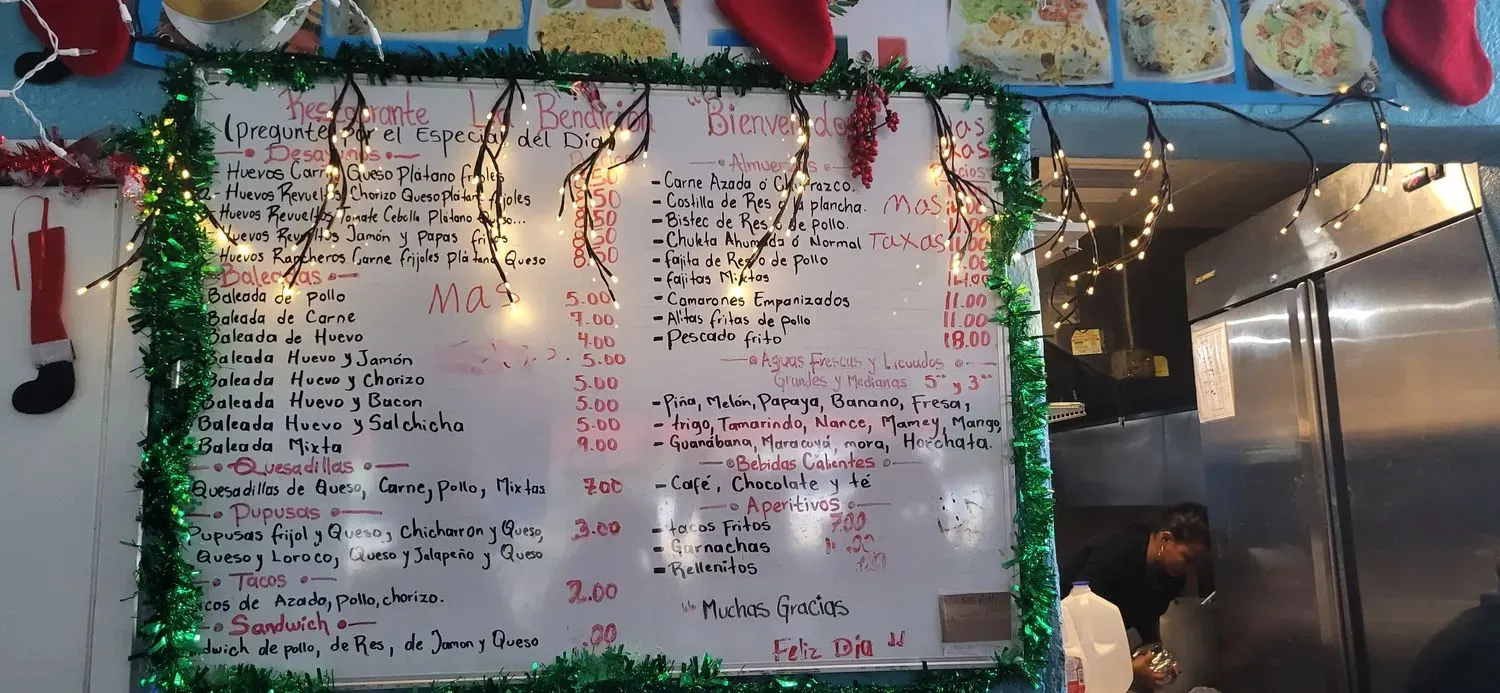 Restaurante La Bendición "Bienvenido
(pregunte por el Especial del Día
Desayunos
Huevos Carne Queso Plátano frijoles
Huevos Revueltos Chorizo Queso Plátano frijoles 8.50
Huevos Revueltos Tomate Cebolla Plátano Queso... 8.50
Huevos Revueltos Jamón y Papas fritas 8.50
Huevos Rancheros Carne frijoles Plátano Queso 8.50
Baleadas
MAS
Baleada de pollo 5.00
Baleada de Carne 7.00
Baleada de Huevo 4.00
Baleada Huevo y Jamón 5.00
Baleada Huevo y Chorizo 5.00
Baleada Huevo y Bacon 5.00
Baleada Huevo y Salchicha 5.00
Baleada Mixta 9.00
Quesadillas
Quesadillas de Queso, Carne, Pollo, Mixtas 7.00
Pupusas
Pupusas frijol y Queso, Chicharron y Queso, 3.00
Queso y Loroco, Queso y Jalapeño y Queso
Tacos
cos de Azada, pollo, chorizo. 2.00
Sandwich
dwich de pollo, de Res, de Jamon y Queso .00
MAS
Taxas
Almuerzos
- Carne Azada ó Churrazco.
- Costilla de Res a la plancha. MAS
- Bistec de Res o de pollo.
- Chuleta Ahumada ó Normal TAXAS 11.00
- fajita de Res o de pollo
- fajitas Mixtas 14.00
- Camarones Empanizados 11.00
- Alitas fritas de pollo 11.00
- Pescado frito 18.00
Aguas Frescas y Licuados
Grandes y Medianas 5°° y 3°°
- Piña, Melón, Papaya, Banano, Fresa,
- trigo, Tamarindo, Nance, Mamey, Mango,
- Guanábana, Maracuyá, mora, Horchata.
Bebidas Calientes
- Café, Chocolate y té
Aperitivos
- tacos Fritos 700
- Garnachas
- Rellenitos
Muchas Gracias
Feliz Día